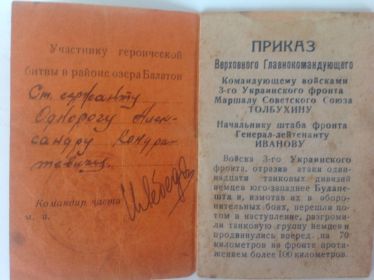 Участнику героической
битвы в районе озера Балатон
Ст. сержанту
Однорогу Алек-
сандру Кондра-
тьевичу
Командир части
м. п.
ПРИКАЗ
Верховного Главнокомандующего
Командующему войсками
3-го Украинского фронта
Маршалу Советского Союза
ТОЛБУХИНУ
Начальнику штаба фронта
Генерал-лейтенанту
ИВАНОВУ
Войска 3-го Украинского
фронта, отразив атаки один-
надцати танковых дивизий
немцев юго-западнее Будапе-
шта и, измотав их в обо-
ронительных боях, перешли
потом в наступление, разгроми-
ли танковую группу немцев и
продвинулись вперед на 70
километров на фронте протя-
жением более 100 километров.